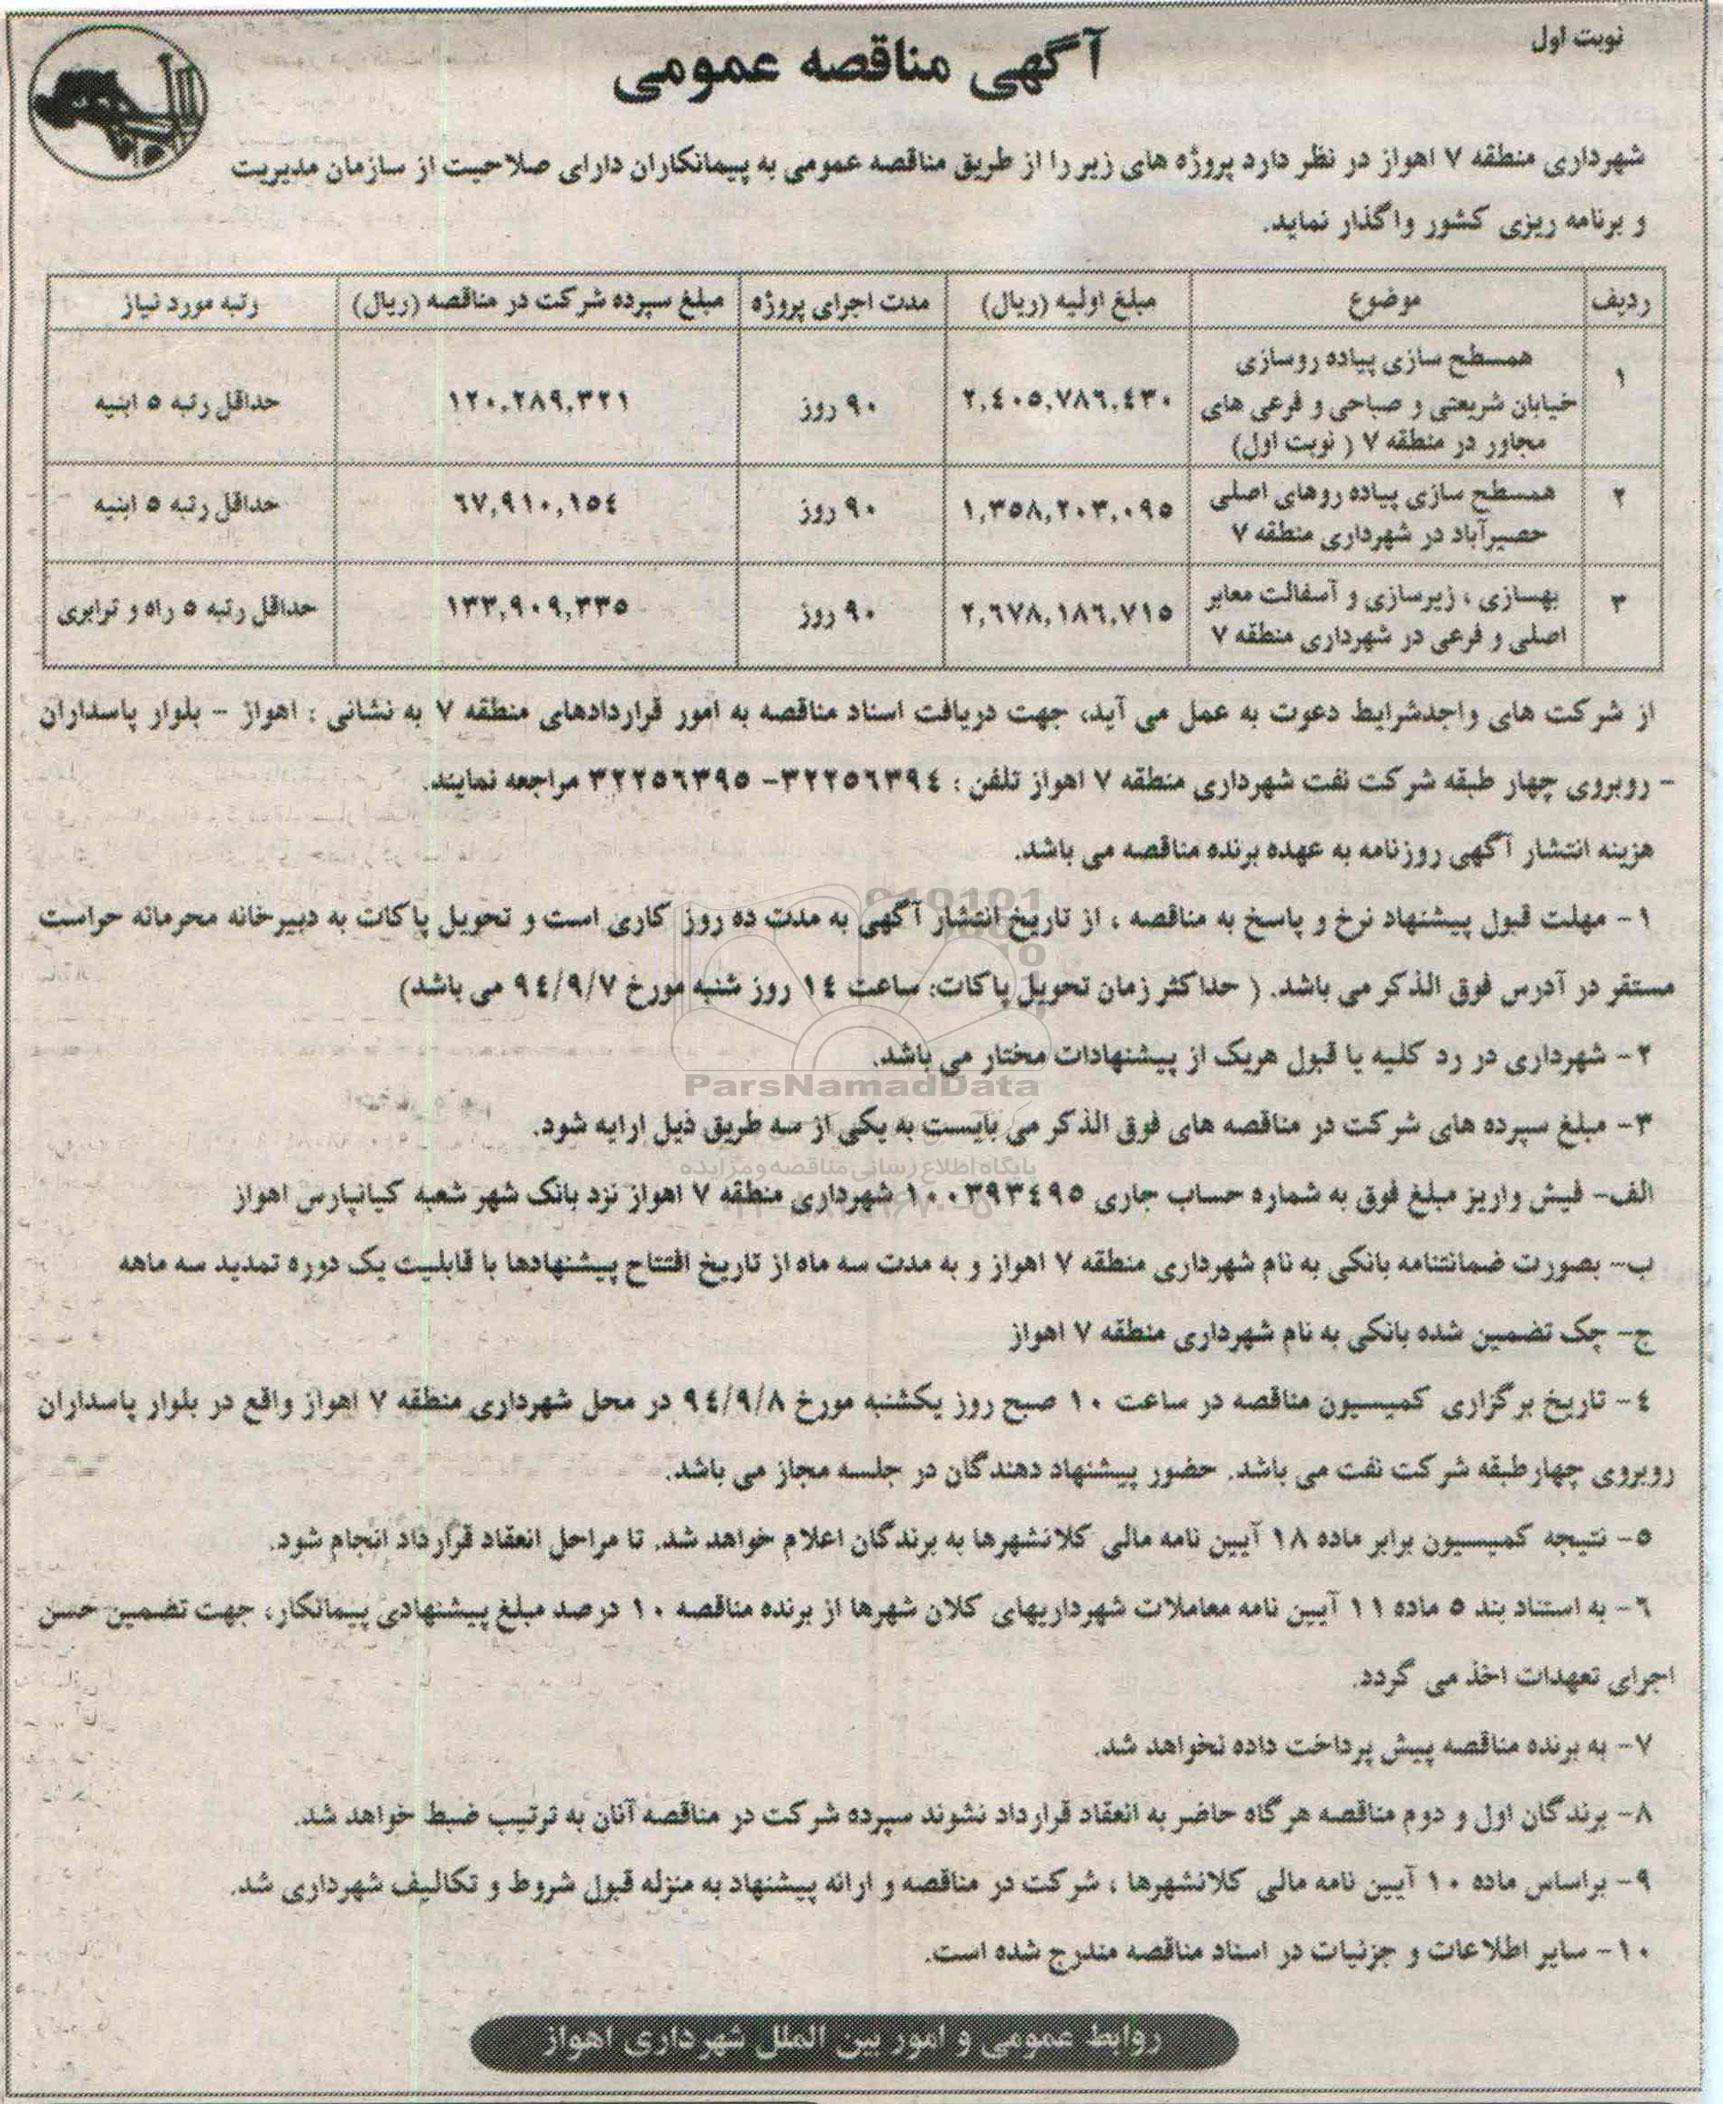 نوبت اول
آگهی مناقصه عمومی
شهرداری منطقه ۷ اهواز در نظر دارد پروژه های زیر را از طریق مناقصه عمومی به پیمانکاران دارای صلاحیت از سازمان مدیریت
و برنامه ریزی کشور واگذار نماید.
ردیف موضوع مبلغ اولیه (ریال) مدت اجرای پروژه مبلغ سپرده شرکت در مناقصه (ریال) رتبه مورد نیاز
۱ همسطح سازی پیاده روسازی
خیابان شریعتی و صباحی و فرعی های
مجاور در منطقه ۷ ( نوبت اول) ۲,٤۰۵,۷۸٦,٤۳۰ ۹۰ روز ۱۲۰,۲۸۹,۳۲۱ حداقل رتبه ۵ ابنیه
۲ همسطح سازی پیاده روهای اصلی
حصیرآباد در شهرداری منطقه ۷ ۱,۳۵۸,۲۰۳,۰۹۵ ۹۰ روز ٦۷,۹۱۰,۱۵٤ حداقل رتبه ۵ ابنیه
۳ بهسازی ، زیرسازی و آسفالت معابر
اصلی و فرعی در شهرداری منطقه ۷ ۲,٦۷۸,۱۸٦,۷۱۵ ۹۰ روز ۱۳۳,۹۰۹,۳۳۵ حداقل رتبه ۵ راه و ترابری
از شرکت های واجدشرایط دعوت به عمل می آید، جهت دریافت اسناد مناقصه به امور قراردادهای منطقه ۷ به نشانی : اهواز – بلوار پاسداران
– روبروی چهار طبقه شرکت نفت شهرداری منطقه ۷ اهواز تلفن : ۳۲۲۵٦۳۹٤– ۳۲۲۵٦۳۹۵ مراجعه نمایند.
هزینه انتشار آگهی روزنامه به عهده برنده مناقصه می باشد.
۱– مهلت قبول پیشنهاد نرخ و پاسخ به مناقصه ، از تاریخ انتشار آگهی به مدت ده روز کاری است و تحویل پاکات به دبیرخانه محرمانه حراست
مستقر در آدرس فوق الذکر می باشد. ( حداکثر زمان تحویل پاکات: ساعت ۱٤ روز شنبه مورخ ۹٤/۹/۷ می باشد)
۲– شهرداری در رد کلیه یا قبول هریک از پیشنهادات مختار می باشد.
ParsNamadData
۳– مبلغ سپرده های شرکت در مناقصه های فوق الذکر می بایست به یکی از سه طریق ذیل ارایه شود.
پایگاه اطلاع رسانی مناقصه و مزایده
الف– فیش واریز مبلغ فوق به شماره حساب جاری ۱۰۰۳۹۳٤۹۵ شهرداری منطقه ۷ اهواز نزد بانک شهر شعبه کیانپارس اهواز
ب– بصورت ضمانتنامه بانکی به نام شهرداری منطقه ۷ اهواز و به مدت سه ماه از تاریخ افتتاح پیشنهادها با قابلیت یک دوره تمدید سه ماهه
ج– چک تضمین شده بانکی به نام شهرداری منطقه ۷ اهواز
٤– تاریخ برگزاری کمیسیون مناقصه در ساعت ۱۰ صبح روز یکشنبه مورخ ۹٤/۹/۸ در محل شهرداری منطقه ۷ اهواز واقع در بلوار پاسداران
روبروی چهارطبقه شرکت نفت می باشد. حضور پیشنهاد دهندگان در جلسه مجاز می باشد.
۵– نتیجه کمیسیون برابر ماده ۱۸ آیین نامه مالی کلانشهرها به برندگان اعلام خواهد شد. تا مراحل انعقاد قرارداد انجام شود.
٦– به استناد بند ۵ ماده ۱۱ آیین نامه معاملات شهرداریهای کلان شهرها از برنده مناقصه ۱۰ درصد مبلغ پیشنهادی پیمانکار، جهت تضمین حسن
اجرای تعهدات اخذ می گردد.
۷– به برنده مناقصه پیش پرداخت داده نخواهد شد.
۸– برندگان اول و دوم مناقصه هرگاه حاضر به انعقاد قرارداد نشوند سپرده شرکت در مناقصه آنان به ترتیب ضبط خواهد شد.
۹– براساس ماده ۱۰ آیین نامه مالی کلانشهرها ، شرکت در مناقصه و ارائه پیشنهاد به منزله قبول شروط و تکالیف شهرداری شد.
۱۰– سایر اطلاعات و جزئیات در اسناد مناقصه مندرج شده است.
روابط عمومی و امور بین الملل شهرداری اهواز